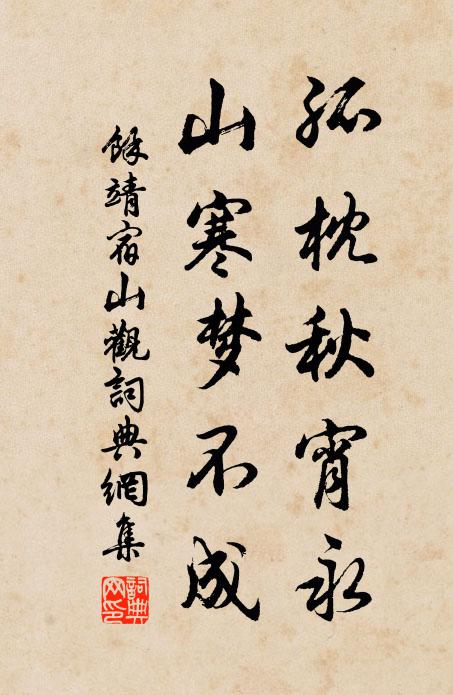 孤枕秋宵永
山寒梦不成
餘靖宿山觀詞典網集
詞典
网印